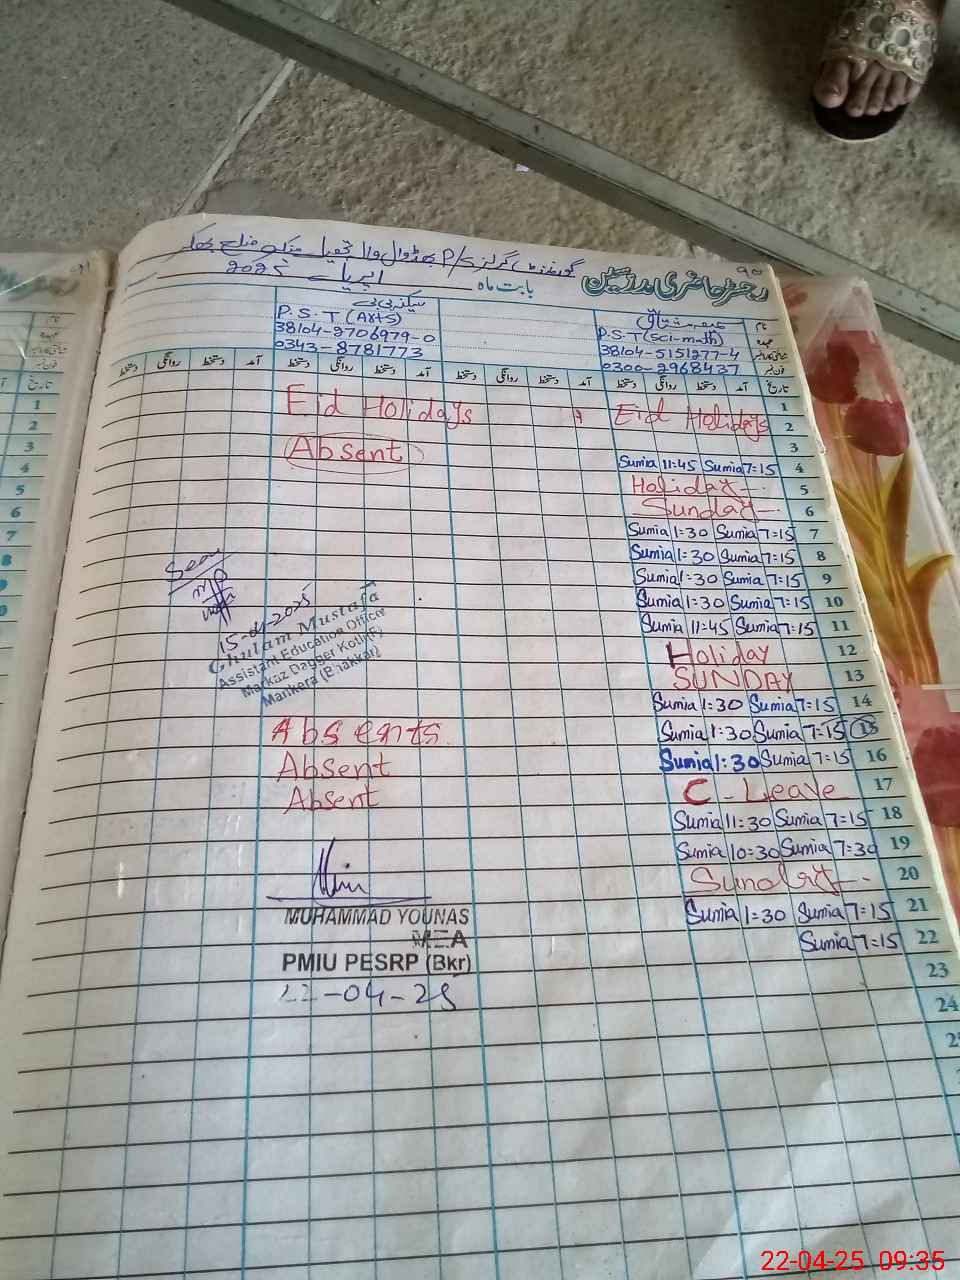 رجسٹر حاضری مدرسین
گورنمنٹ گرلز P/S بھڈوال والا تحصیل منکیرہ ضلع بھکر
بابت ماہ اپریل 2025
نام
عہدہ
شناختی کارڈ نمبر
فون نمبر
P.S.T (Sci-math)
38104-5151277-4
0300-2968437
سکینہ بی بی
P.S.T (Arts)
38104-2706979-0
0343-8781773
تاریخ آمد دستخط روانگی دستخط آمد دستخط روانگی دستخط آمد دستخط روانگی دستخط آمد دستخط روانگی دستخط
1 Eid Holidays Eid Holidays
2
3
4 Sumia 7:15 Sumia 11:45 Absent
5 Holiday
6 Sunday
7 Sumia 7:15 Sumia 1:30
8 Sumia 7:15 Sumia 1:30
9 Sumia 7:15 Sumia 1:30
10 Sumia 7:15 Sumia 1:30
11 Sumia 7:15 Sumia 11:45
12 Holiday
13 SUNDAY
14 Sumia 7:15 Sumia 1:30
15 Sumia 7:15 Sumia 1:30 Absents
16 Sumia 7:15 Sumia 1:30 Absent
17 C-Leave Absent
18 Sumia 7:15 Sumia 11:30
19 Sumia 7:30 Sumia 10:30
20 Sunday
21 Sumia 7:15 Sumia 1:30
22 Sumia 7:15
23
24
Seen
15-04-2025
Ghulam Mustafa
Assistant Education Officer
Markaz Dagger Kotli(F)
Mankera (Bhakkar)
MUHAMMAD YOUNAS
MEA
PMIU PESRP (Bkr)
22-04-25
تاریخ
1
2
3
4
5
6
7
8
22-04-25 09:35